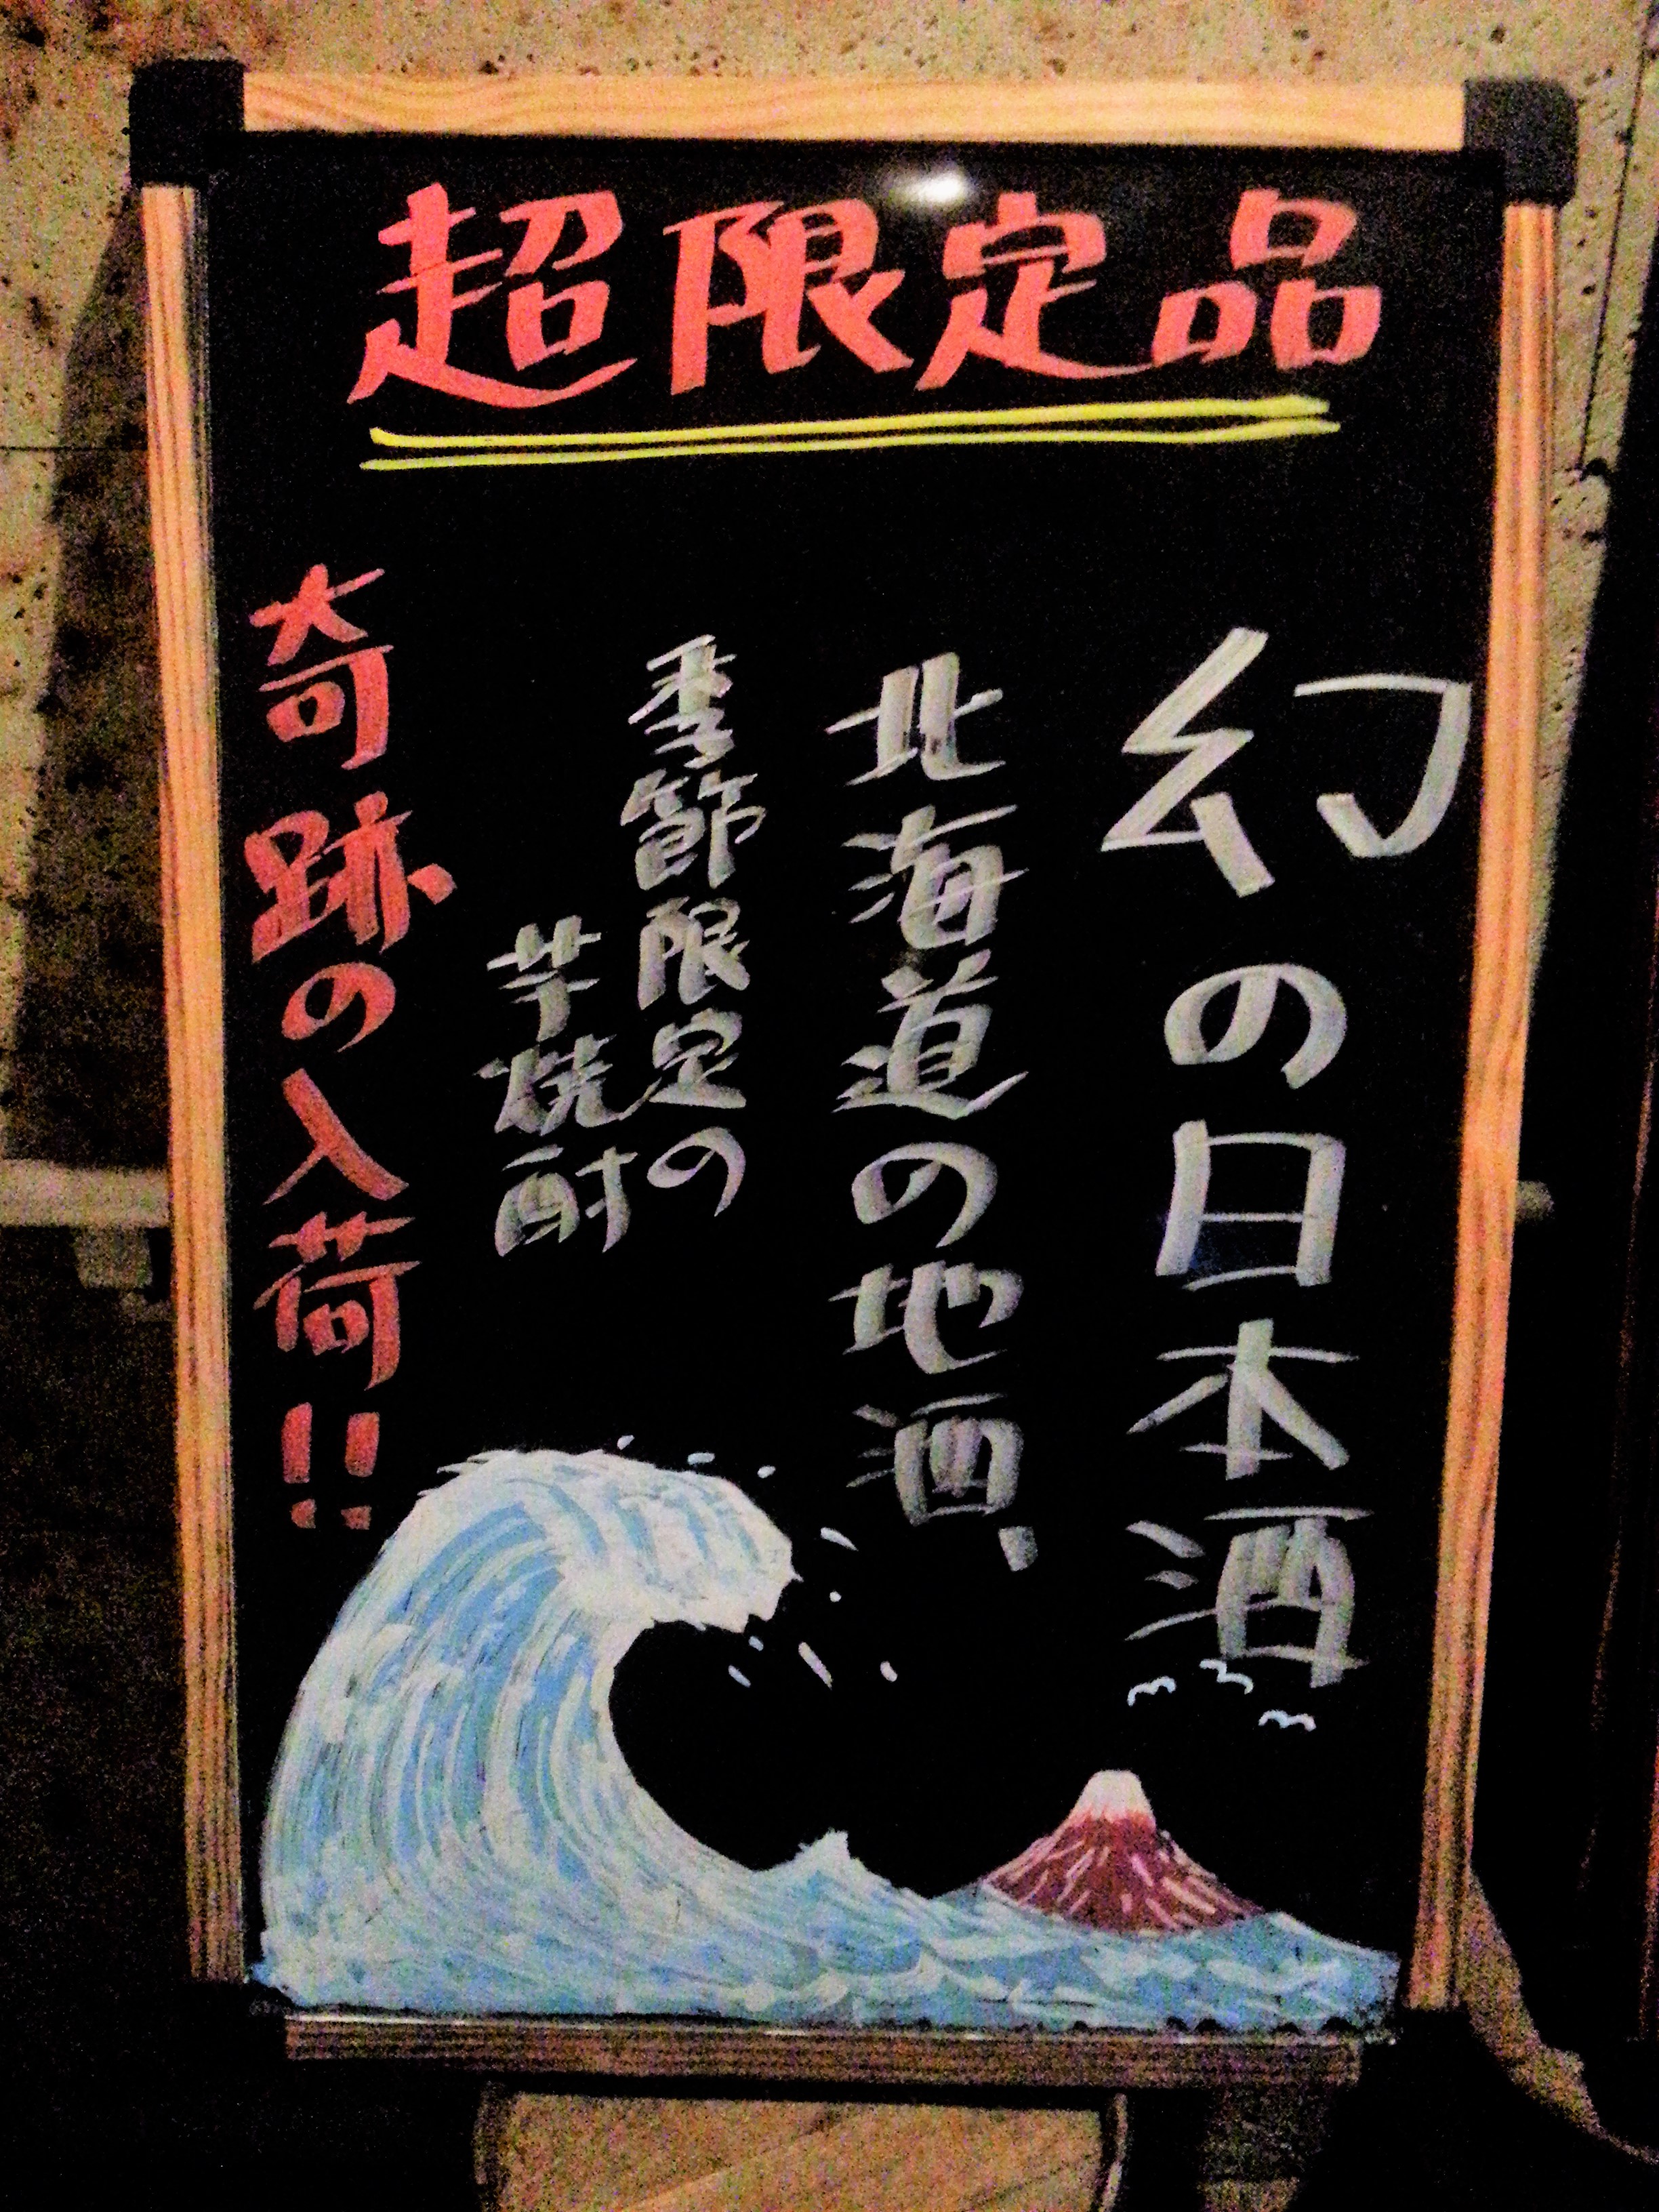 超限定品
幻の日本酒
北海道の地酒、
季節限定の
芋焼酎
奇跡の入荷!!